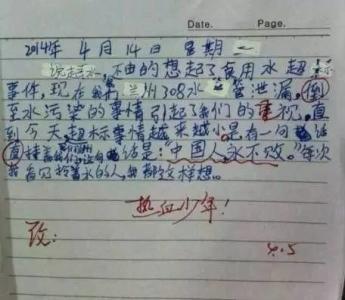 Date. Page.
2014年 4月14日 星期一
说起水,不由的想起了食用水超标
事件,现在兰州308水管泄漏,倒
至水污染的事情引起了我们的重视,直
到今天,超标事情越来越小是有一句话
直 话是:“中国人永不败。”每次
我看见 水的人,我都这样想。
热血少年!
改: 4.5